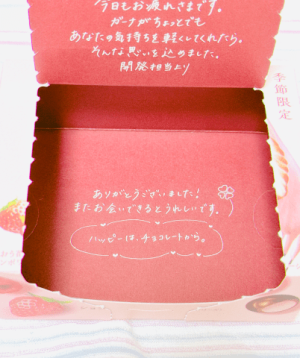 今日もお疲れさまです。
ガーナがちょっとでも
あなたの気持ちを軽くしてくれたら。
そんな思いを込めました。
開発担当より
季節限定
ありがとうございました!
またお会いできるとうれしいです。
ハッピーは、チョコレートから。